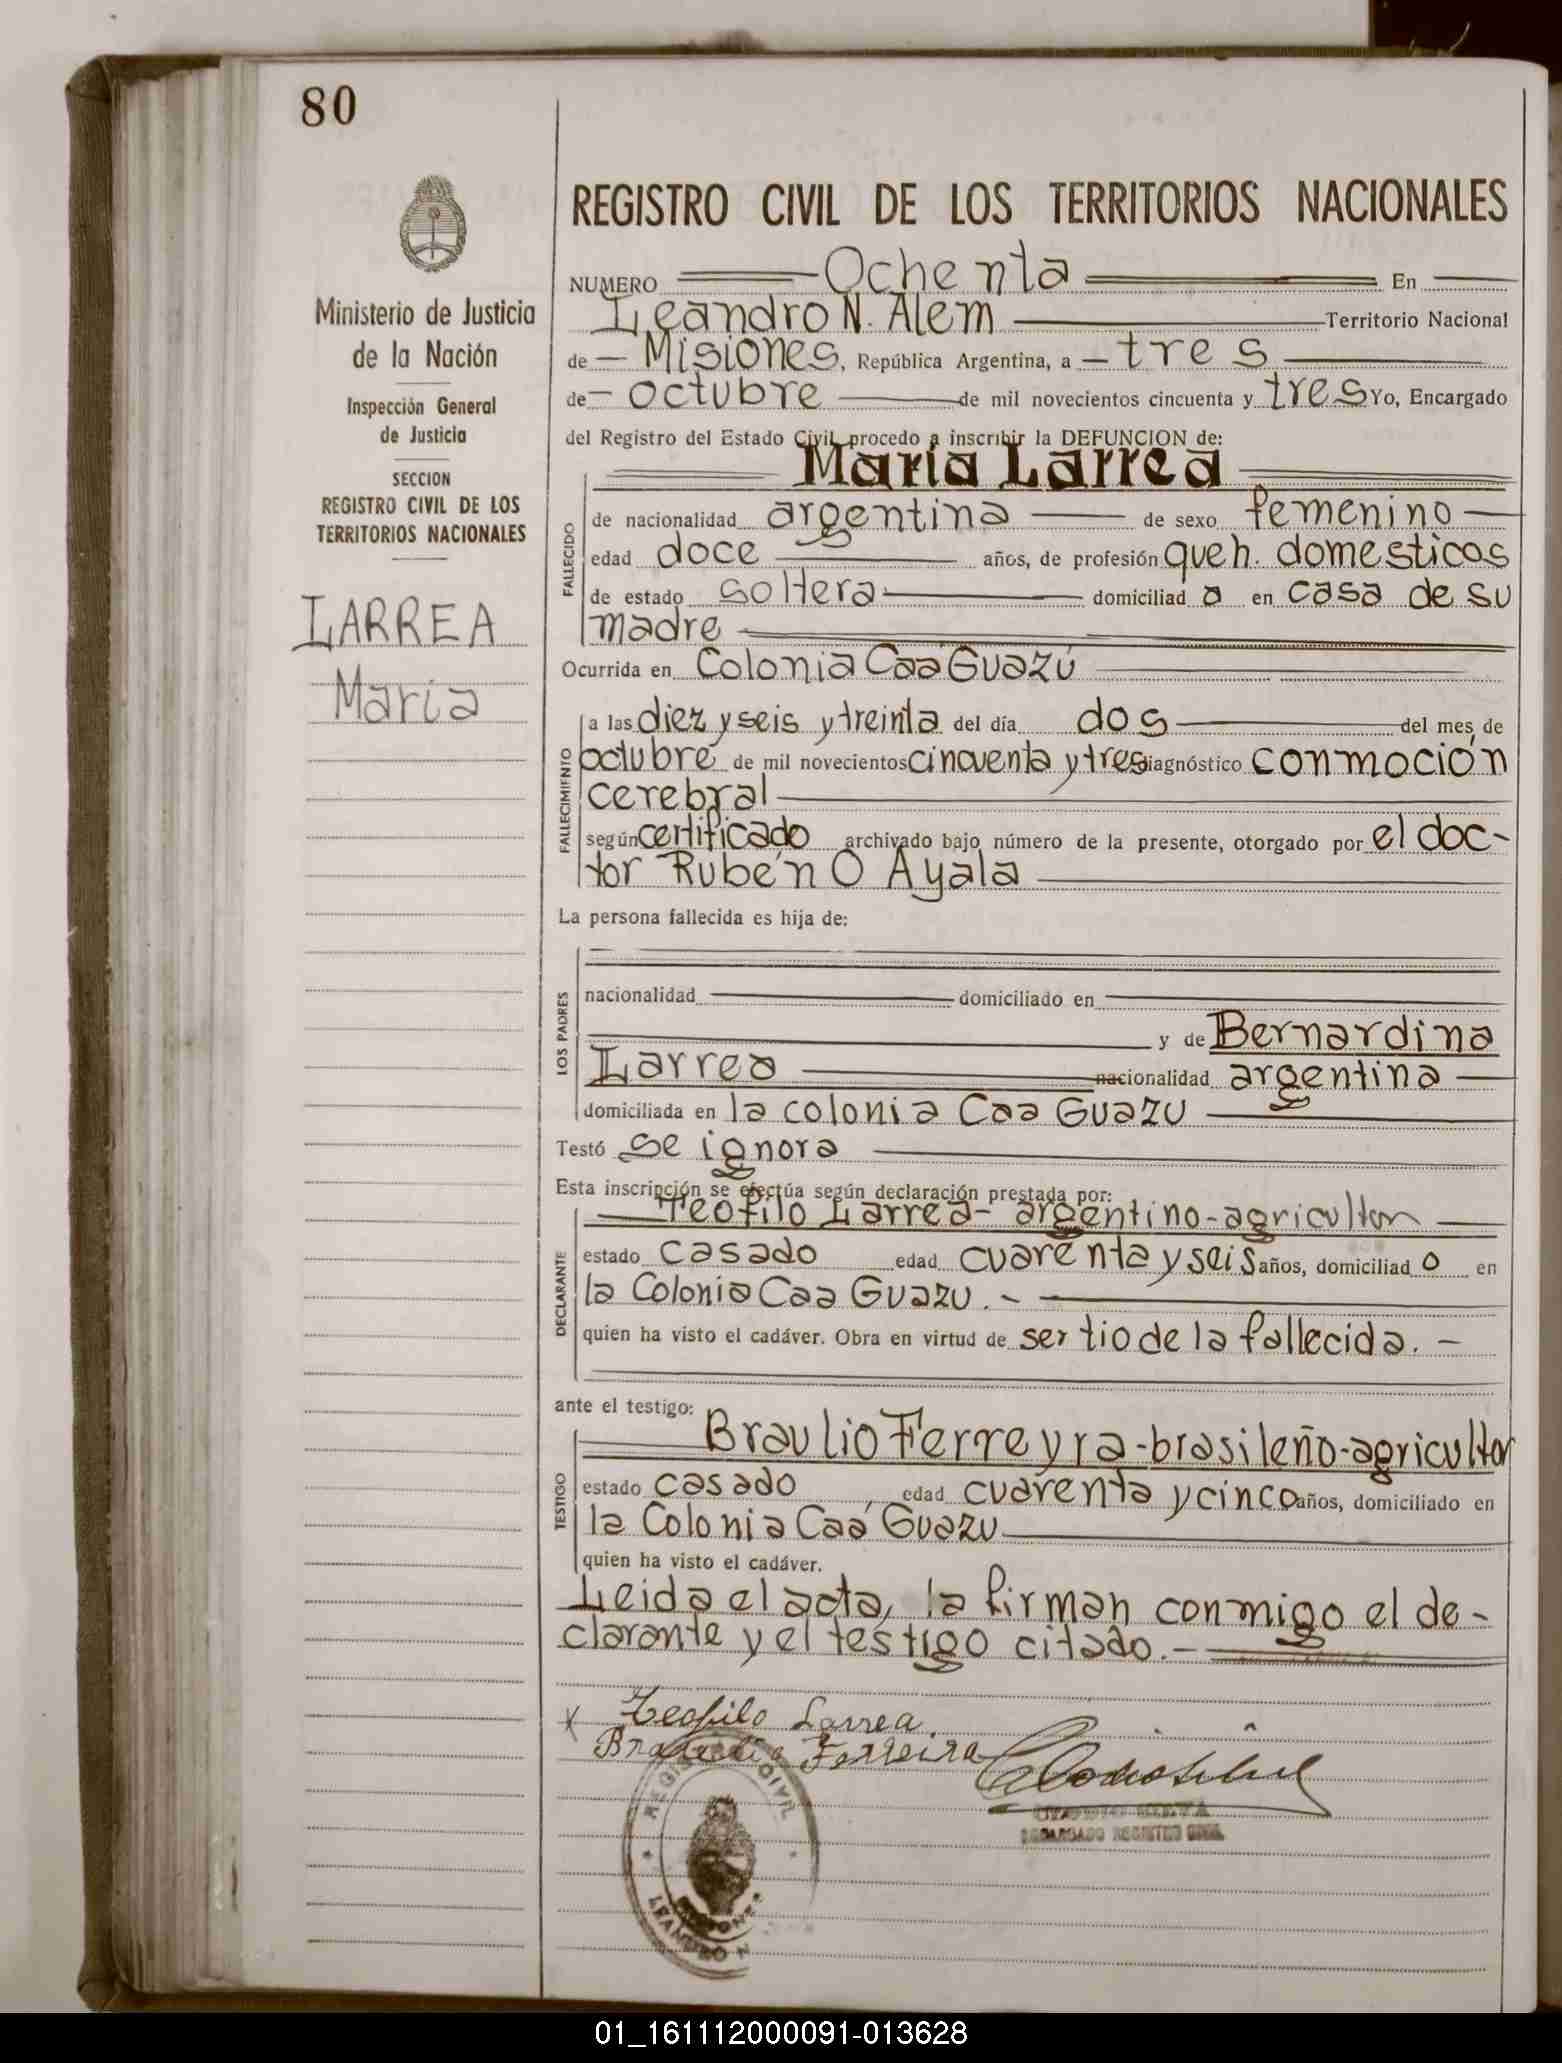 80
REGISTRO CIVIL DE LOS TERRITORIOS NACIONALES
Ministerio de Justicia
de la Nación
Inspección General
de Justicia
SECCION
REGISTRO CIVIL DE LOS
TERRITORIOS NACIONALES
LARREA
María
NUMERO Ochenta En
Leandro N. Alem Territorio Nacional
de Misiones, República Argentina, a tres
de octubre de mil novecientos cincuenta y tres Yo, Encargado
del Registro del Estado Civil, procedo a inscribir la DEFUNCION de:
María Larrea
FALLECIDO
de nacionalidad argentina de sexo femenino
edad doce años, de profesión queh. domesticos
de estado soltera domiciliad a en casa de su
madre
Ocurrida en Colonia Caá Guazú
FALLECIMIENTO
a las diez y seis y treinta del día dos del mes de
octubre de mil novecientos cincuenta y tres diagnóstico conmoción
cerebral
según certificado archivado bajo número de la presente, otorgado por el doc-
tor Rubén O Ayala
La persona fallecida es hija de:
LOS PADRES
nacionalidad domiciliado en
y de Bernardina
Larrea nacionalidad argentina
domiciliada en la colonia Caa Guazu
Testó se ignora
Esta inscripción se efectúa según declaración prestada por:
DECLARANTE
Teofilo Larrea- argentino-agricultor
estado casado edad cuarenta y seis años, domiciliad o en
la Colonia Caa Guazu.-
quien ha visto el cadáver. Obra en virtud de ser tio de la fallecida.-
ante el testigo:
TESTIGO
Braulio Ferreyra-brasileño-agricultor
estado casado, edad cuarenta y cinco años, domiciliado en
la Colonia Caá Guazu
quien ha visto el cadáver.
Leida el acta, la firman conmigo el de-
clarante y el testigo citado.-
x Teofilo Larrea.
Ferreira
REGISTRO CIVIL
MISIONES
LEANDRO N
ENCARGADO REGISTRO CIVIL
01_161112000091-013628